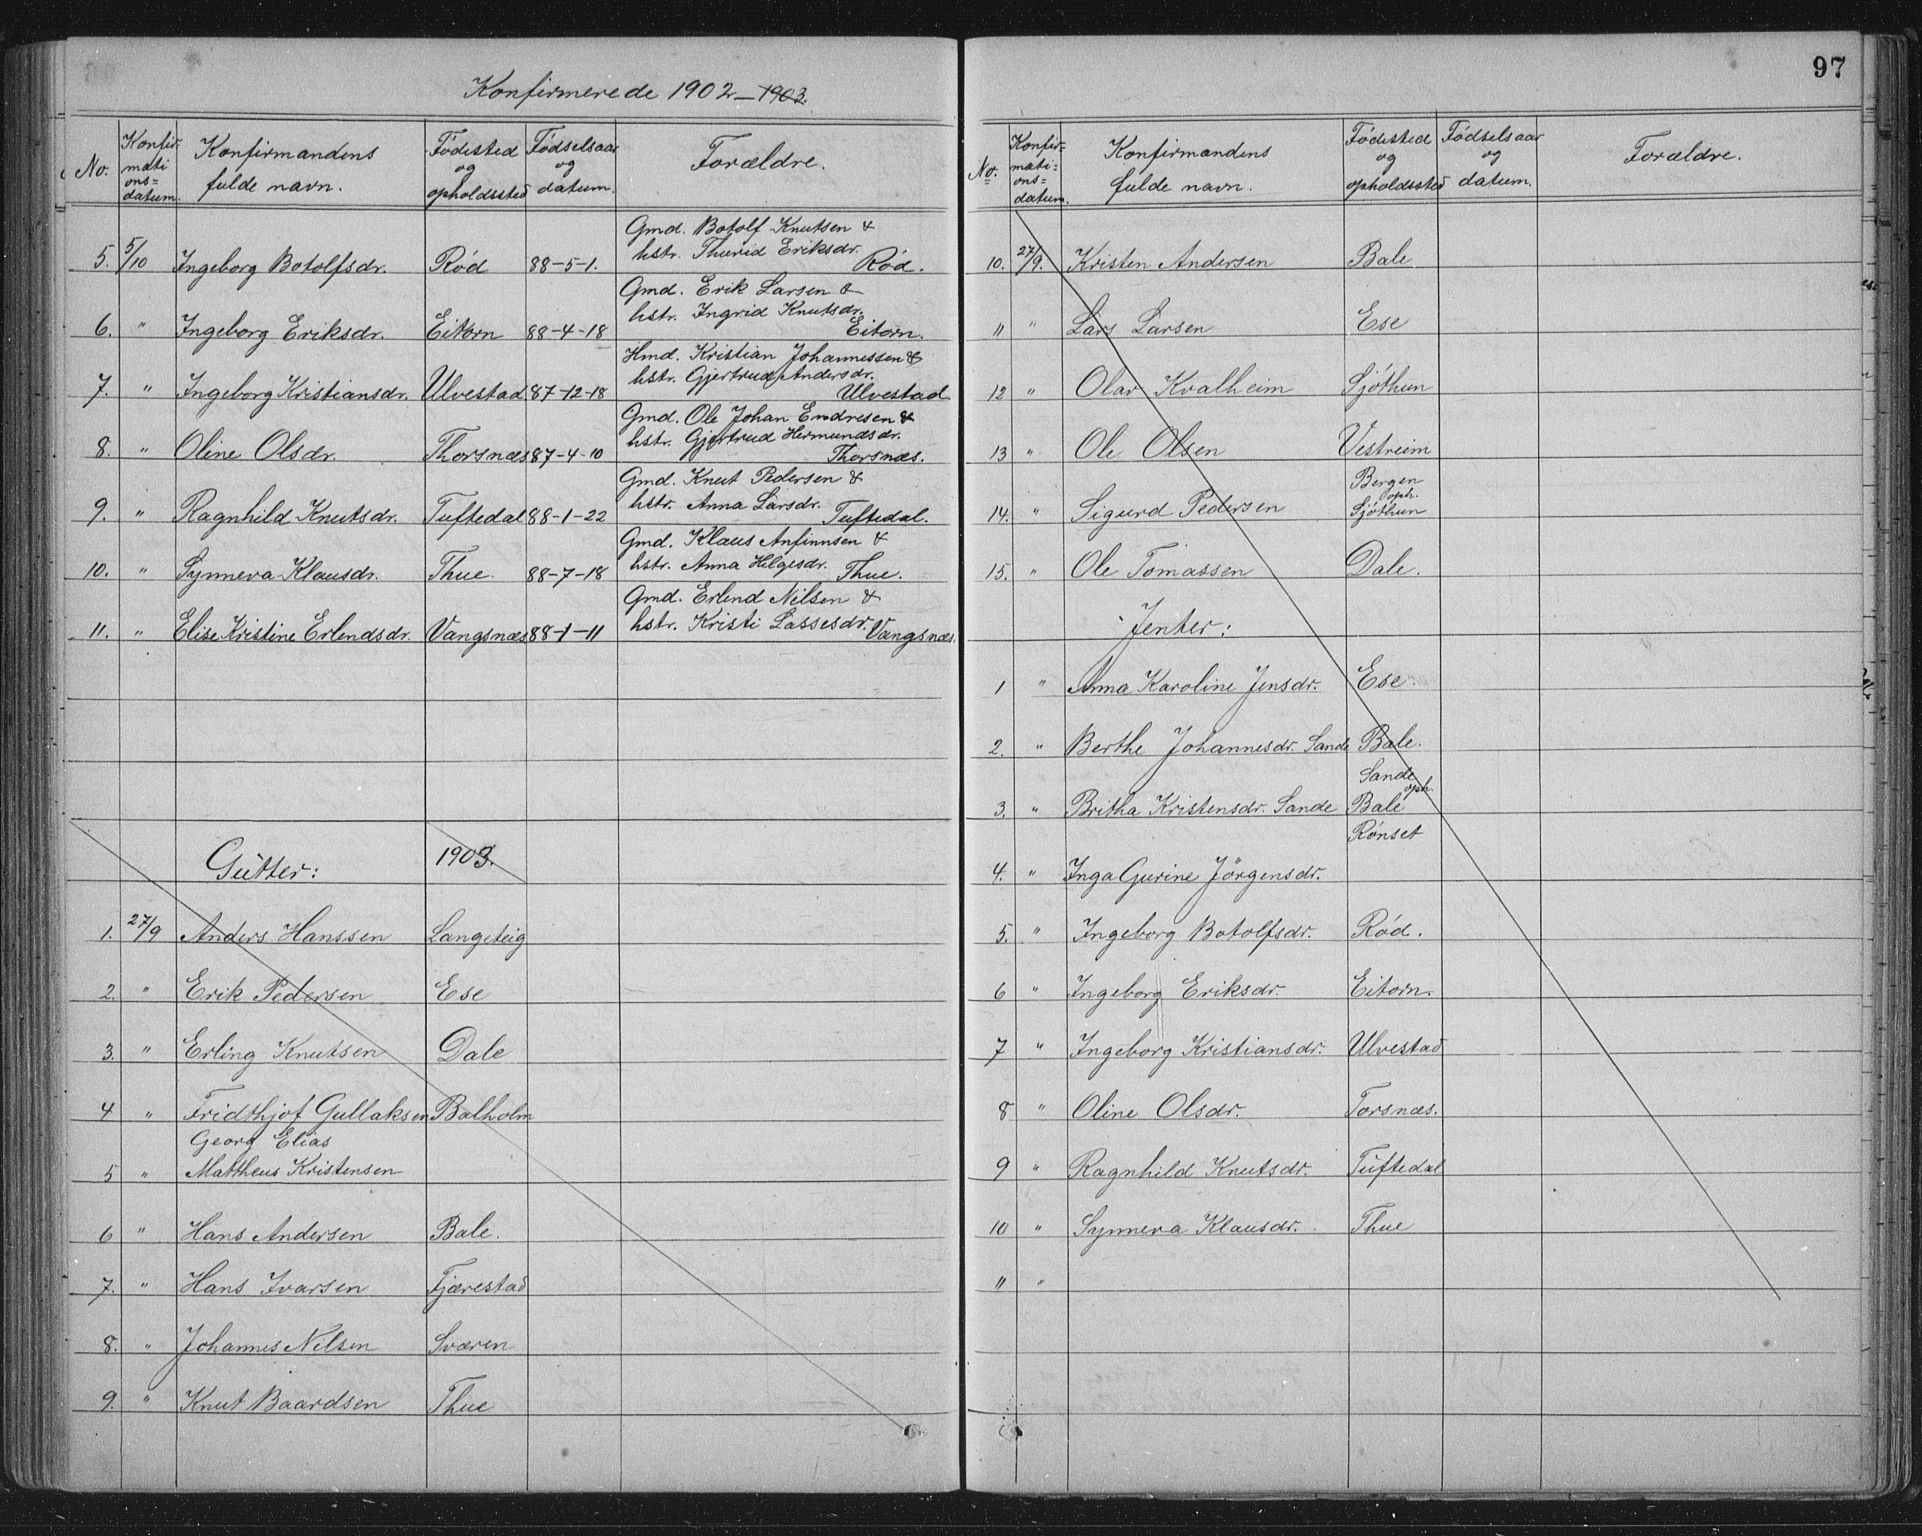 Konfirmerede 1902–1903.
No. Konfirmationsdatum. Konfirmandens fulde navn. Fødested og opholdssted Fødselsaar og datum. Forældre.
Gmd. Botolf Knutsen &
hstr. Thurid Eriksdr.
5. 5/10 Ingeborg Botolfsdr. Rød 88-5-1. Rød.
Gmd. Erik Larsen &
hstr. Ingrid Knutsdr.
6. " Ingeborg Eriksdr. Eitorn 88-4-18 Eitorn.
Hmd. Kristian Johannessen &
hstr. Gjertrud Andersdr.
7. " Ingeborg Kristiansdr. Ulvestad 87-12-18 Ulvestad
Gmd. Ole Johan Endresen &
hstr. Gjertrud Hermundsdr.
8. " Oline Olsdr. Thorsnæs 87-4-10 Thorsnæs.
Gmd. Knut Pedersen &
hstr. Anna Larsdr.
9. " Ragnhild Knutsdr. Tuftedal 88-1-22 Tuftedal.
Gmd. Klaus Anfinnsen &
hstr. Anna Helgesdr.
10. " Synneva Klausdr. Thue. 88-7-18 Thue.
Gmd. Erlend Nilsen &
hstr. Kristi Lassesdr.
11. " Elise Kristine Erlendsdr. Vangsnæs 88-1-11 Vangsnæs.
Gutter: 1903.
1. 27/9 Anders Hanssen Langeteig
2. " Erik Pedersen Ese
3. " Erling Knutsen Dale
4 " Fridthjof Gullaksen Balholm
Georg Elias
5 " Mattheus Kristensen
6 " Hans Andersen Bale.
7. " Hans Ivarsen Fjærestad
8. " Johannes Nilsen Sværen
9. " Knut Baardsen Thue
97
No. Konfirmati=ons=datum. Konfirmandens fulde navn. Fødested og opholdssted Fødselsaar og datum. Forældre.
10. 27/9. Kristen Andersen Bale
11 " Lars Larsen Ese
12 " Olav Kvalheim Sjøthun
13 " Ole Olsen Vestreim
Bergen
oph.
14. " Sigurd Pedersen Sjøthun
15. " Ole Tomassen Dale.
Jenter:
1 " Anna Karoline Jensdr. Ese
2. " Berthe Johannesdr. Sande Bale.
Sande
oph.
3. " Britha Kristensdr. Sande Bale
Rønset
4. " Inga Gurine Jörgensdr.
5. " Ingeborg Botolfsdr. Rød.
6 " Ingeborg Eriksdr. Eitorn.
7 " Ingeborg Kristiansdr. Ulvestad
8 " Oline Olsdr. Torsnæs.
9 " Ragnhild Knutsdr. Tuftedal
10 " Synneva Klausdr. Thue
11 "